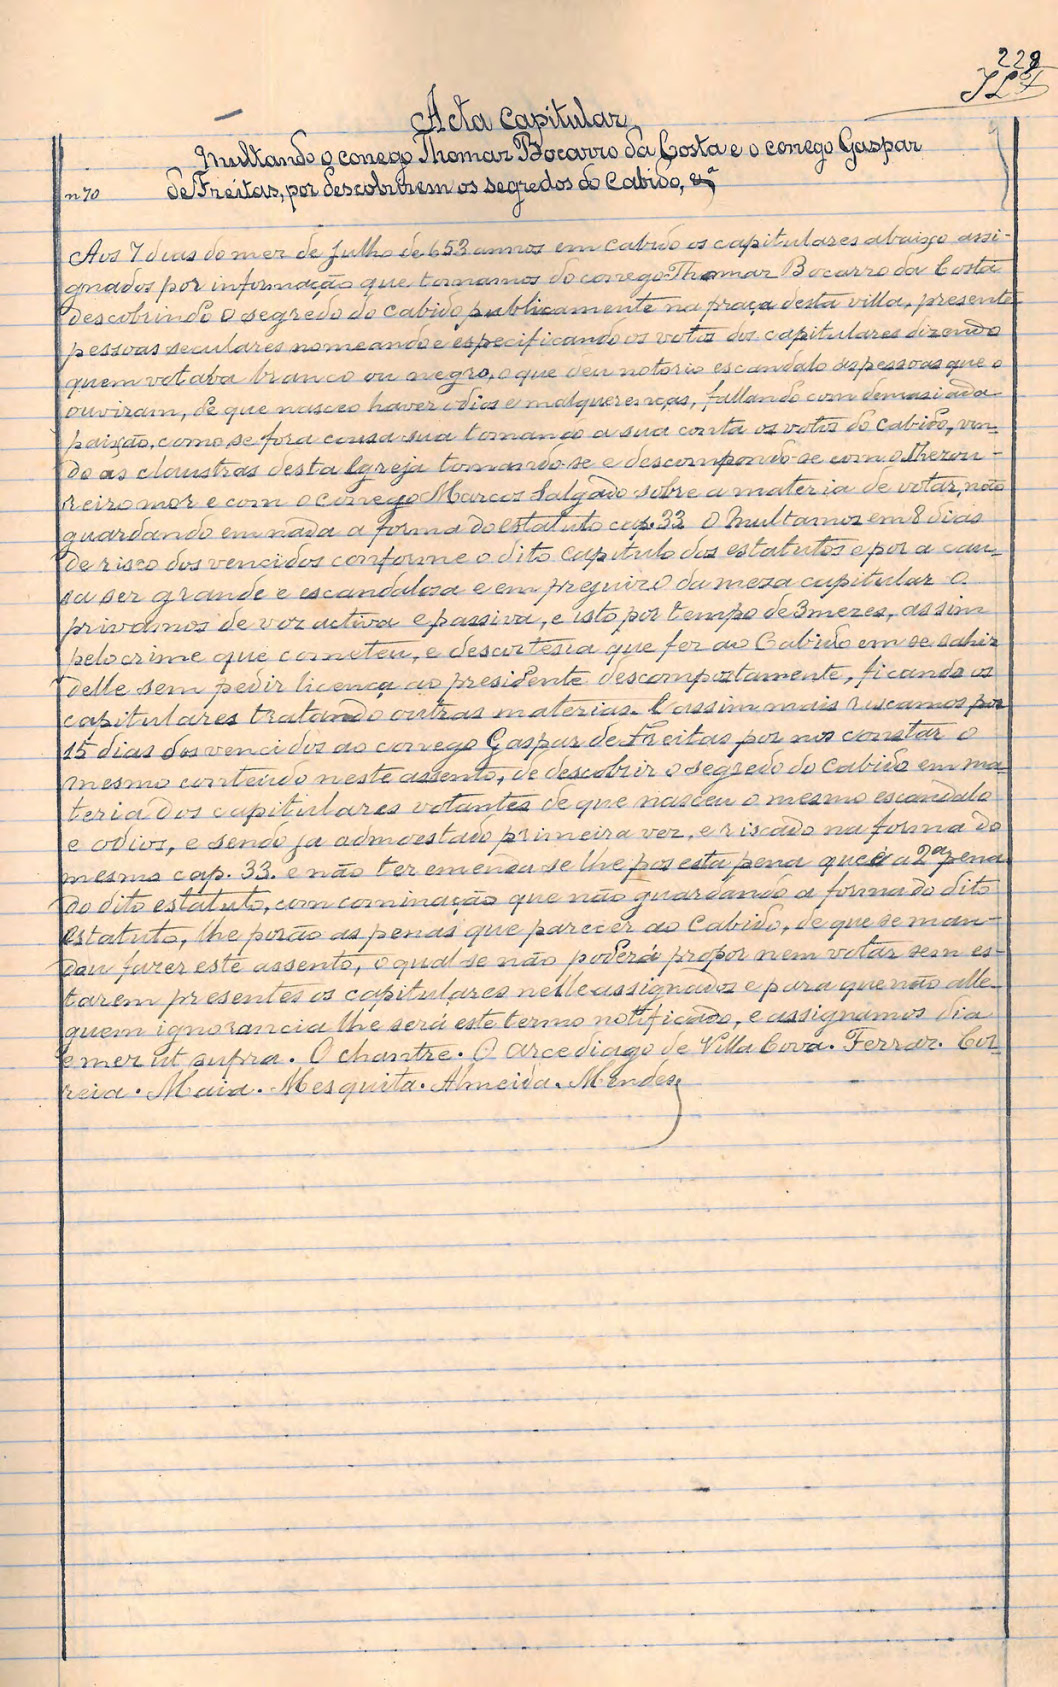 229
Acta capitular
Multando o conego Thomaz Bocarro da Costa e o conego Gaspar
n 70 de Freitas, por descobrirem os segredos do Cabido, &ª
Aos 7 dias do mez de Julho de 653 annos em Cabido os capitulares abaixo assi-
gnados por informação que tomamos do conego Thomaz Bocarro da Costa
descobrindo o segredo do cabido publicamente na praça desta villa, presente
pessoas seculares nomeando e especificando os votos dos capitulares dizendo
quem votava branco ou negro, o que deu notorio escandalo as pessoas que o
ouviram, de que nasceo haver odios e malquerenças, fallando com demasiada
paixão, como se fora cousa sua tomando a sua conta os votos do Cabido, vin-
do as claustras desta Igreja tomando-se e descompondo-se com o Thezou-
reiro mor e com o conego Marcos Salgado sobre a materia de votar, não
guardando em nada a forma do estatuto cap. 33 O multamos em 8 dias
de risco dos vencidos conforme o dito capitulo dos estatutos e por a cau-
sa ser grande e escandalosa e em prejuizo da meza capitular o
privamos de voz activa e passiva, e isto por tempo de 3 mezes, assim
pelo crime que cometeu, e descortesia que fez ao Cabido em se sahir
delle sem pedir licença ao presidente descompostamente, ficando os
capitulares tratando outras materias. E assim mais riscamos por
15 dias dos vencidos ao conego Gaspar de Freitas por nos constar o
mesmo conteudo neste assento, de descobrir o segredo do Cabido em ma-
teria dos capitulares votantes de que nasceu o mesmo escandalo
e odios, e sendo ja admoestado primeira vez, e riscado na forma do
mesmo cap. 33. e não ter emenda se lhe pos esta pena que é a 2ª pena
do dito estatuto, com cominação que não guardando a forma do dito
Estatuto, lhe porão as penas que parecer ao Cabido, de que se man-
dou fazer este assento, o qual se não poderá propor nem votar sem es-
tarem presentes os capitulares nelle assignados e para que não alle-
guem ignorancia lhe será este termo notificado, e assignamos dia
e mez ut supra. O chantre. O arcediago de Villa Cova. Ferraz. Cor-
reia. Maia. Mesquita. Almeida. Mendes